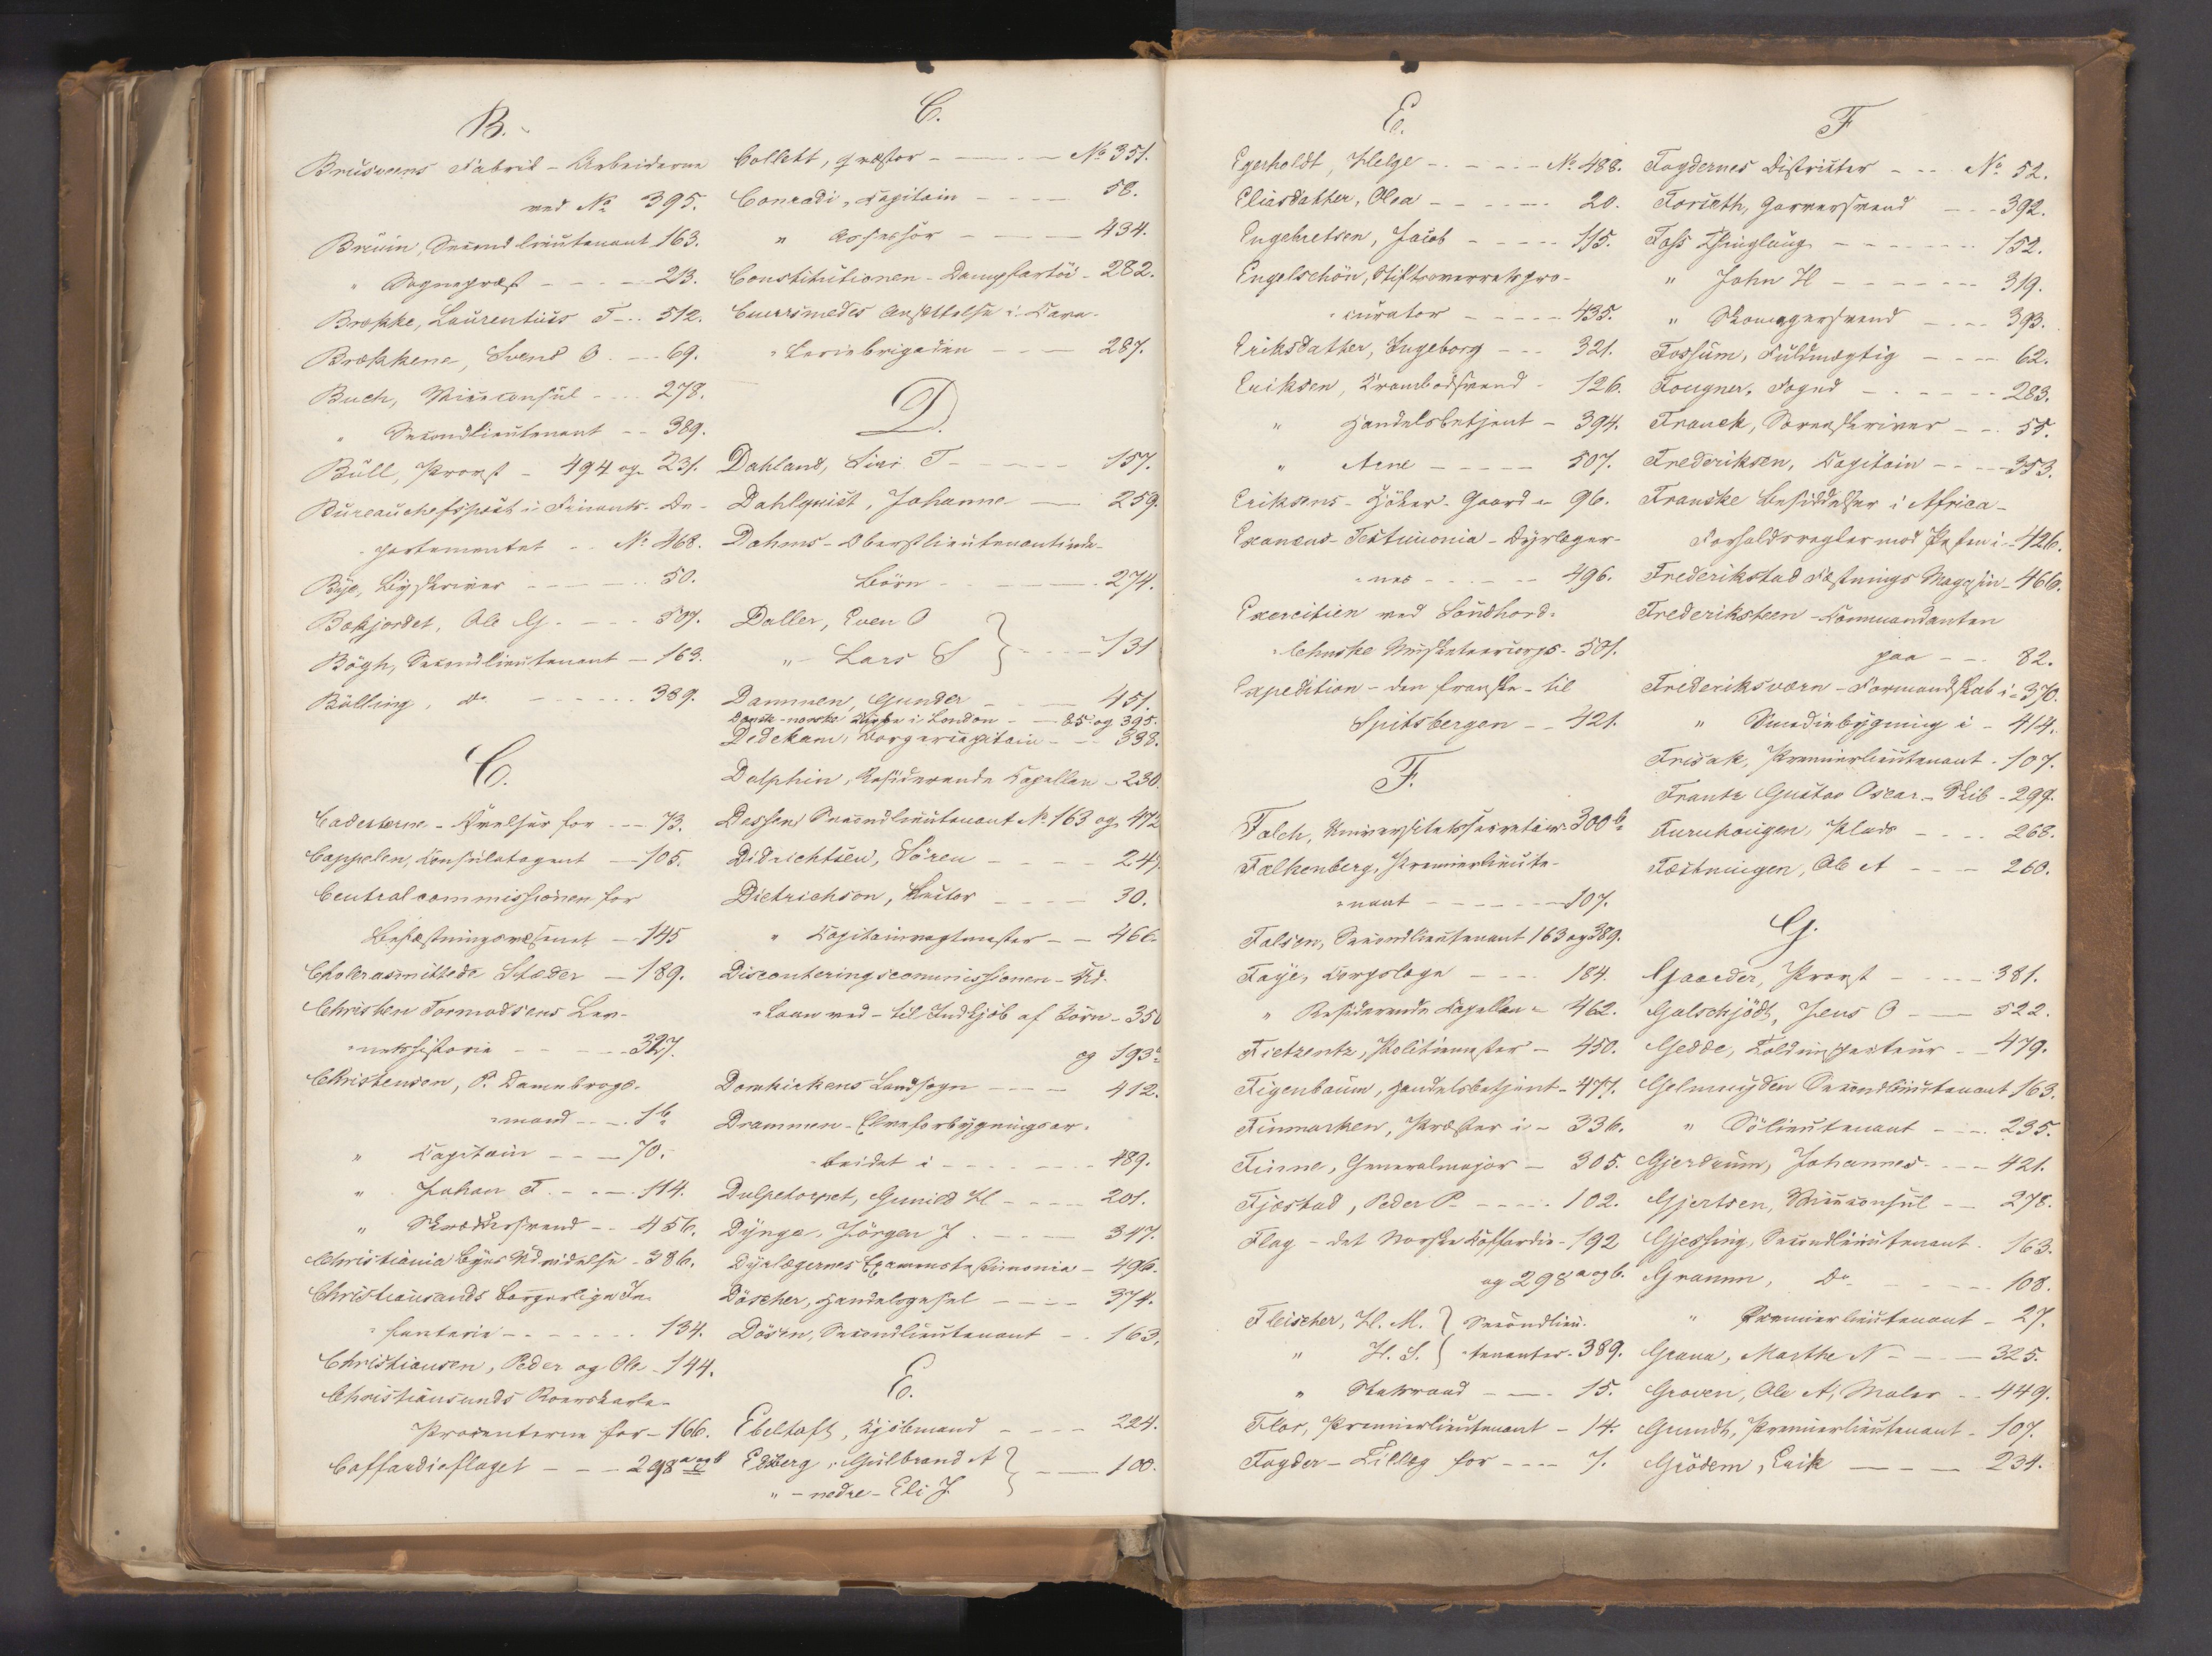 B.
Brusveens Fabrik-Arbeiderne
ved No 395.
Bruun, Secondlieutenant 163.
" Sognepræst - - - 213.
Brække, Laurentius T - - 512.
Brækkene, Svend O - - 69.
Buch, Viceconsul - - 278.
" Secondlieutenant - - 389.
Bull, Provst - 494 og 231.
Bureauchefspost i Finants-De-
partementet - - No 468.
Bye, Byskriver - - - - 50.
Bøkjordet, Ole G. - - - 507.
Bögh, Secondlieutenant - 163.
Bölling, do - - - - 389.
C.
Cadetterne - Øvelser for - - 73.
Cappelen, Consulatagent - 105.
Centralcommissionen for
Befæstningsvæsenet - 145
Cholerasmittede Stæder - 189.
Christen Tormodsens Lev-
netshistorie - - - - 327.
Christensen, P. Dannebrogs-
mand - - - 1b.
" Capitain - - - 70.
" Johan F. - - - 114.
" Skrædersvend - - 456.
Christiania Byes Udvidelse - 386.
Christiansands borgerlige In-
fanterie - - - - - 134.
Christiansen, Peder og Ole - 144.
Christiansunds Roerskarle-
Procenterne for - 166.
Coffardieflaget - - - 298 a og b
C.
Collett, Qvæstor - - - - No 351.
Conradi, Capitain - - - - 58.
" Assessor - - - - 434.
Constitutionen - Dampfartöi - 282.
Cuursmedes Ansættelse i Cava-
leriebrigaden - - - 287.
D.
Dahland, Siri T - - - - 157.
Dahlqvist, Johanne - - 259.
Dahms - Oberstlieutenantinde-
Börn - - - - 274.
Daller, Even O
" - Lars S } - - - 131
Dammen, Gunder - - - 451.
Dansk-norske Kirke i London - - 85 og 395.
Dedekam, Borgercapitain - - 338.
Dolphin, Residerende Capellan - 230
Dessen, Secondlieutenant No 163 og 472
Didrichtsen, Sören - - - - 247
Dietrichson, Pastor - - - 30.
" Capitainvagtmester - - 466.
Disconteringscommissionen - Ud-
Laan ved - til Indkjöb af Korn - 350
og 193c
Domkirkens Landsogn - - - 412.
Drammen - Elveforbygningsar-
beidet i - - - - - 489.
Dulpetorpet, Gunild H - - - 201.
Dynge, Jörgen J. - - - 347.
Dyrlægernes Examenstestimonia - 496.
Döscher, Handelsgesel - - - 374.
Dösen, Secondlieutenant - - 163.
E.
Ebeltoft, Kjöbmand - - - 224.
Edsberg, Gulbrand A
" - nedre - Eli J. } - - - 100.
E.
Egerholdt, Helge - - - - No 488.
Eliasdatter, Olea - - - - 20.
Engebretsen, Jacob - - - - 115.
Engelschön, Stiftsoverretspro-
curator - - - - 435.
Eriksdatter, Ingeborg - - 321.
Eriksen, Krambodsvend - 126.
" Handelsbetjent - 394.
" Arne - - - - 507.
Eriksens - Höker-Gaard - 96.
Examens-Testimonia-Dyrlæger-
nes - - - - - 496.
Exercitien ved Söndhord-
lehnske Musketeercorps - 501.
Expedition - den franske - til
Spitsbergen - - 421.
F.
Falch, Universitetssecretair - 300b.
Falkenberg, Premierlieute-
nant - - - - - - 107.
Falsen, Secondlieutenant 163 og 389.
Faye, Corpslæge - - - - 184.
" Residerende Capellan - 462.
Fietzentz, Politiemester - 450.
Figenbaum, Handelsbetjent - 477.
Finmarken, Præster i - 336.
Finne, Generalmajor - 305.
Fjæstad, Peder P. - - - - 102.
Flag - det Norske Coffardie - 192
og 298 a og b.
Fleischer, H. M. } Secondlieu-
" H. S. { tenanter - 389.
" Statsraad - - - 15.
Flor, Premierlieutenant - 14.
Fogder - Tillæg for - - - 7.
F
Fogdernes Districter - - - No 52.
Forseth, Garversvend - - - 392.
Foss Thinglaug - - - - - 152.
" John H - - - - - - 319.
" Skomagersvend - - - 393.
Fossum, Fuldmægtig - - - 62.
Fougner, Foged - - - - - 283.
Franck, Sorenskriver - - - 55.
Frederiksen, Capitain - - - 353.
Franske Besiddelser i Africa -
Forholdsregler mod Pesten i - 426.
Frederikstad Fæstnings Magazin - 466.
Frederiksteen - Commandanten
paa - - - 82.
Frideriksværn - Formandskab i - 370.
" Smediebygning i - 414.
Frisak, Premierlieutenant - 107.
Frants Gustav Oscar - Skib - 299.
Furuhougen, Plads - - - - 268.
Fæstningen, Ole A - - - 260.
G.
Gaarder, Provst - - - - 381.
Galschjödt, Jens O - - - 522.
Gedde, Toldinspecteur - - 479.
Gelmuyden Secondlieutenant 163.
" Sölieutenant - - - 235.
Gjerdrum, Johannes - - - 421.
Gjertsen, Viceconsul - - 278.
Gjessing, Secondlieutenant - 163.
Gramm, Do - - - - - 108.
" Premierlieutenant - 27.
Grana, Marthe N - - - 325.
Groven, Ole A, Maler - - 449.
Grundt, Premierlieutenant - 107.
Grödem, Erik - - - 234.